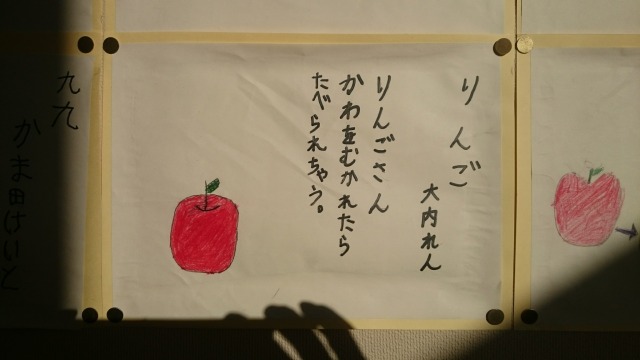 りんご
大内れん
りんごさん
かわをむかれたら
たべられちゃう。
九九
かま田けいと